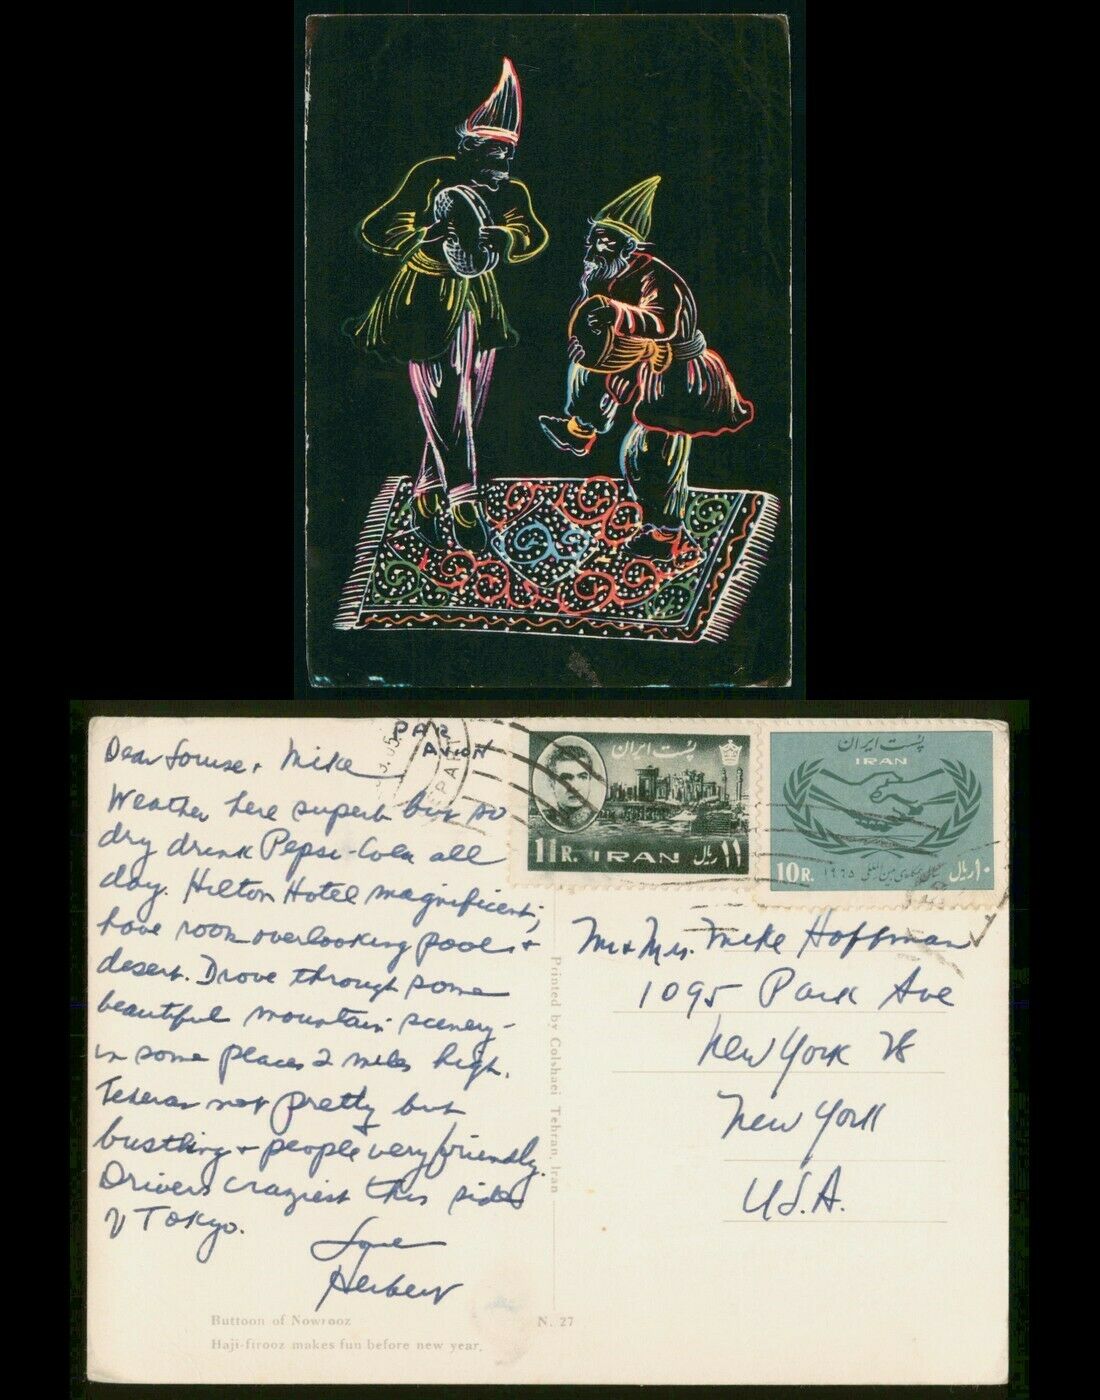 PAR
AVION
Dear Louise + Mike
Weather here superb but so
dry drink Pepsi-Cola all
day. Hilton Hotel magnificent;
have room overlooking pool +
desert. Drove through some
beautiful mountain scenery-
in some places 2 miles high.
Teheran not pretty but
bustling + people very friendly.
Drivers craziest this side
of Tokyo.
Love
Herbert
پست ایران
11R. IRAN ۱۱ ریال
پست ایران
IRAN
10R. ۱۹۶۵ ۱۰ ریال
Mr + Mrs. Mike Hoffman
1095 Park Ave
New York 28
New York
U.S.A.
Printed by Colshaei Tehran, Iran
Buttoon of Nowrooz
N. 27
Haji-firooz makes fun before new year.